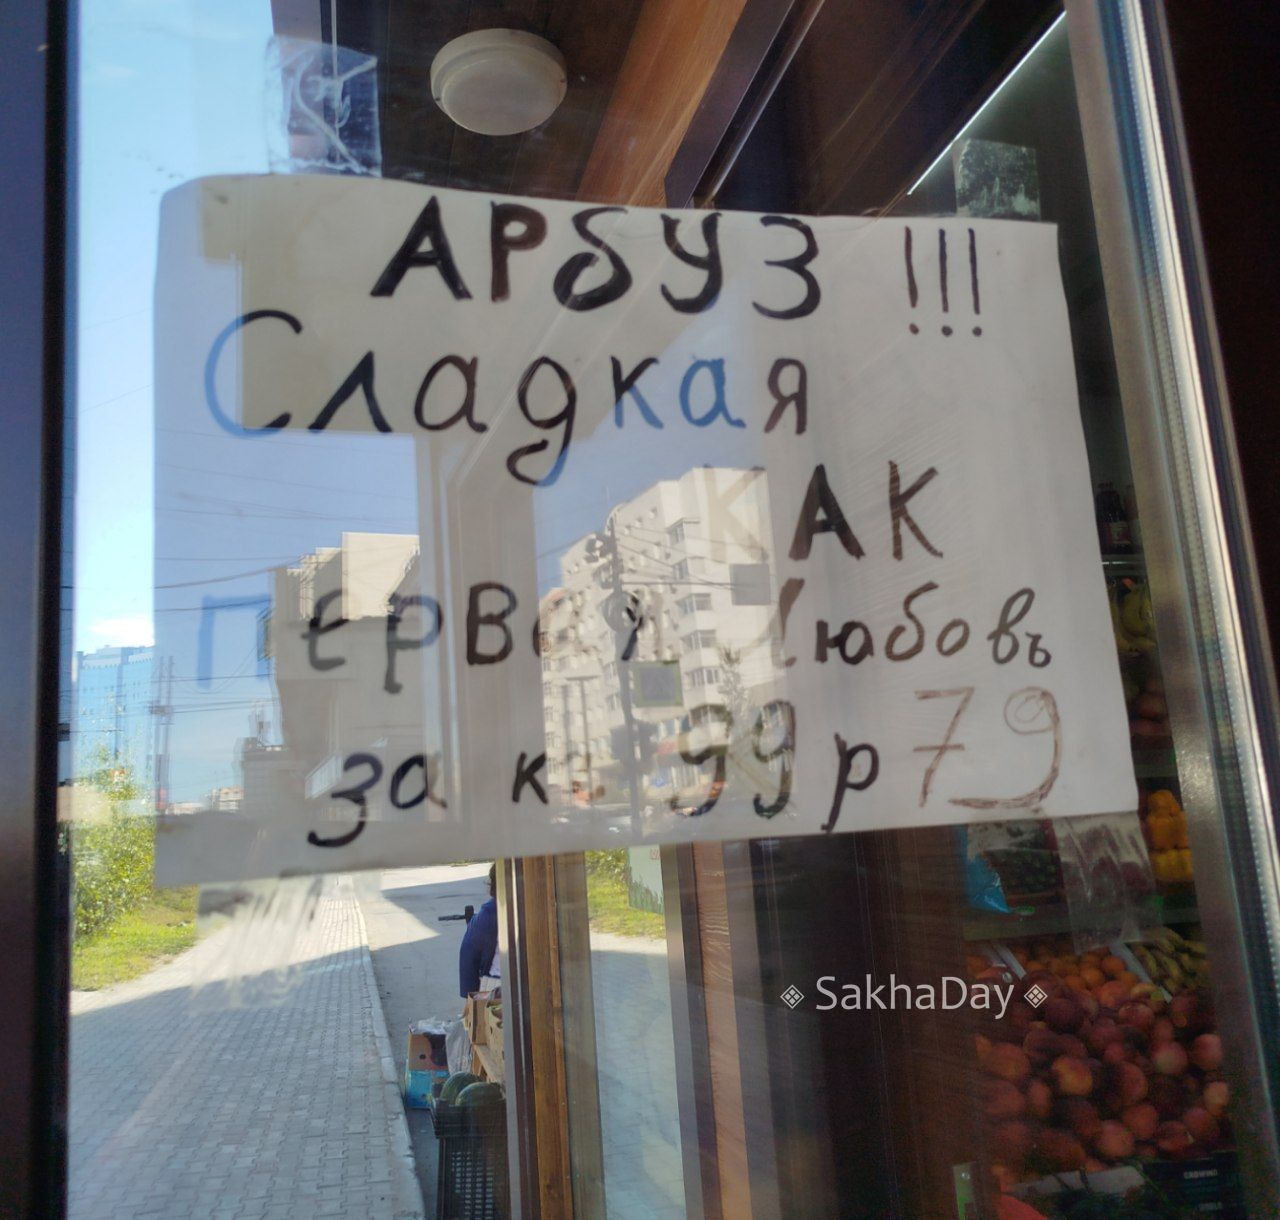 АРБУЗ !!!
Сладкая
КАК
Первая Любовь
за кг 99 р 79
SakhaDay